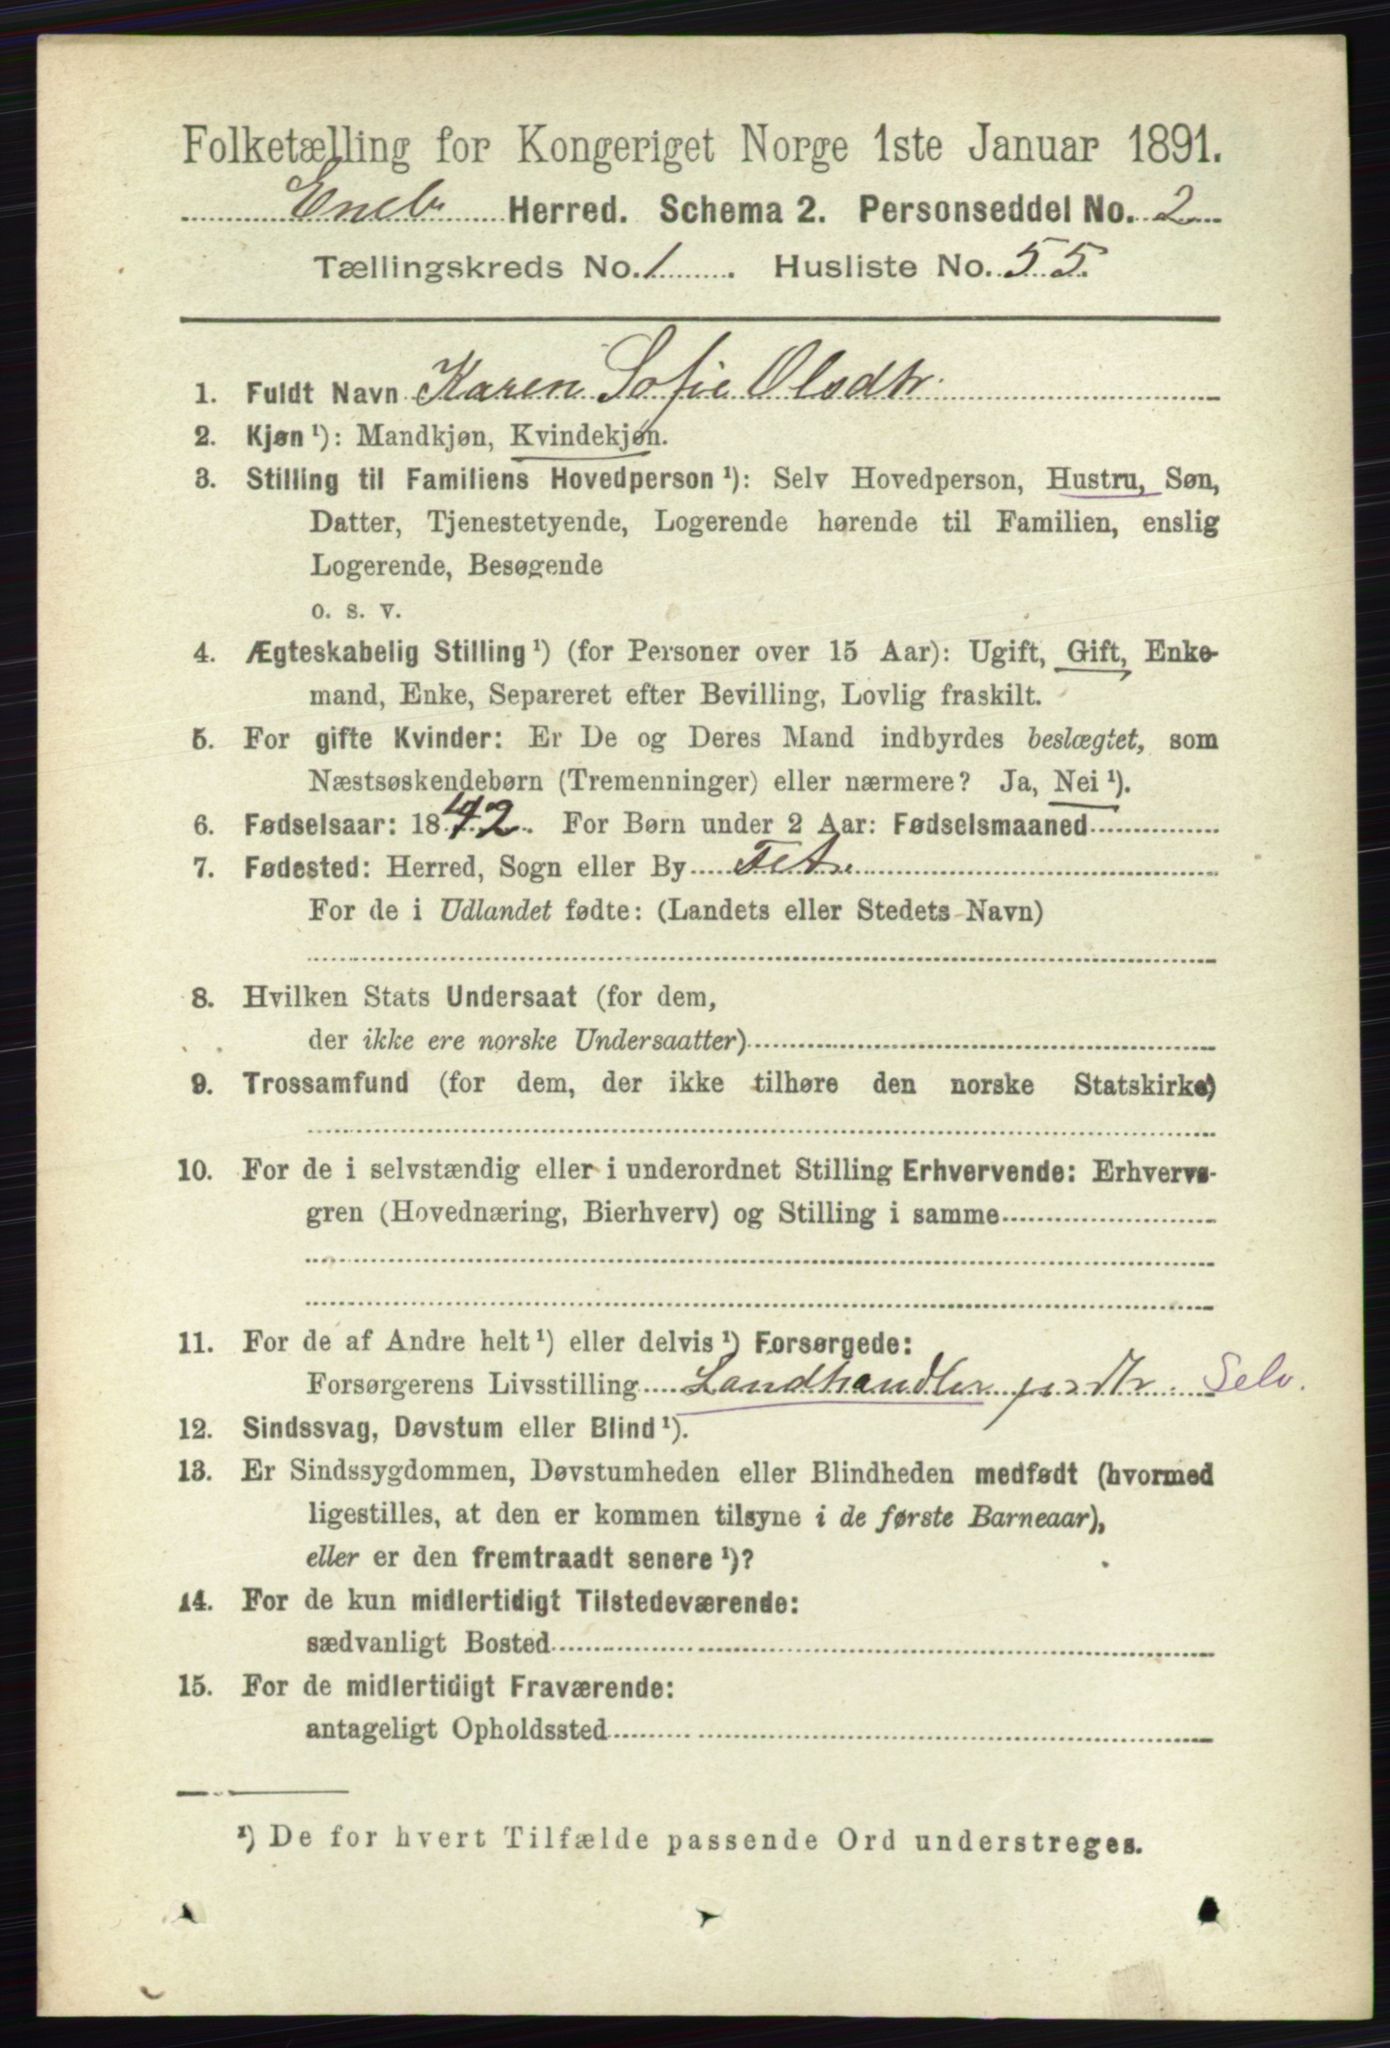 Folketælling for Kongeriget Norge 1ste Januar 1891.
Eneb Herred. Schema 2. Personseddel No. 2
Tællingskreds No. 1. Husliste No. 55
1. Fuldt Navn Karen Sofie Olsdtr.
2. Kjøn ¹): Mandkjøn, Kvindekjøn.
3. Stilling til Familiens Hovedperson ¹): Selv Hovedperson, Hustru, Søn,
Datter, Tjenestetyende, Logerende hørende til Familien, enslig
Logerende, Besøgende
o. s. v.
4. Ægteskabelig Stilling ¹) (for Personer over 15 Aar): Ugift, Gift, Enke-
mand, Enke, Separeret efter Bevilling, Lovlig fraskilt.
5. For gifte Kvinder: Er De og Deres Mand indbyrdes beslægtet, som
Næstsøskendebørn (Tremenninger) eller nærmere? Ja, Nei ¹).
6. Fødselsaar: 1842. For Børn under 2 Aar: Fødselsmaaned
7. Fødested: Herred, Sogn eller By Fet
For de i Udlandet fødte: (Landets eller Stedets Navn)
8. Hvilken Stats Undersaat (for dem,
der ikke ere norske Undersaatter)
9. Trossamfund (for dem, der ikke tilhøre den norske Statskirke)
10. For de i selvstændig eller i underordnet Stilling Erhvervende: Erhvervs-
gren (Hovednæring, Bierhverv) og Stilling i samme
11. For de af Andre helt ¹) eller delvis ¹) Forsørgede:
Forsørgerens Livsstilling Landhandler Selv.
12. Sindssvag, Døvstum eller Blind ¹).
13. Er Sindssygdommen, Døvstumheden eller Blindheden medfødt (hvormed
ligestilles, at den er kommen tilsyne i de første Barneaar),
eller er den fremtraadt senere ¹)?
14. For de kun midlertidigt Tilstedeværende:
sædvanligt Bosted
15. For de midlertidigt Fraværende:
antageligt Opholdssted
¹) De for hvert Tilfælde passende Ord understreges.